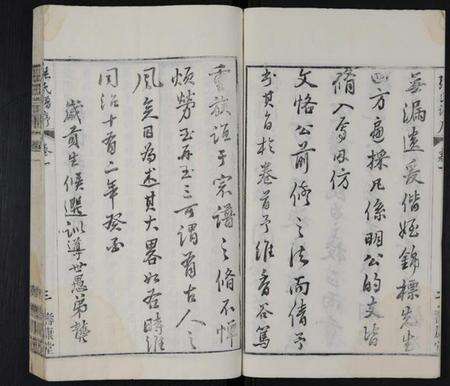 無漏遺爰偕姪錦標先生
四方徧採凡係明公的支皆
脩入焉因仿
文恪公前修之法而倩予
書其自於卷首予維香谷篤
重族誼于宗譜之脩不憚
煩勞至再至三可謂有古人之
風矣因為述其大畧如右時維
同治十有二年癸酉
歲貢生候選訓導世愚弟龔